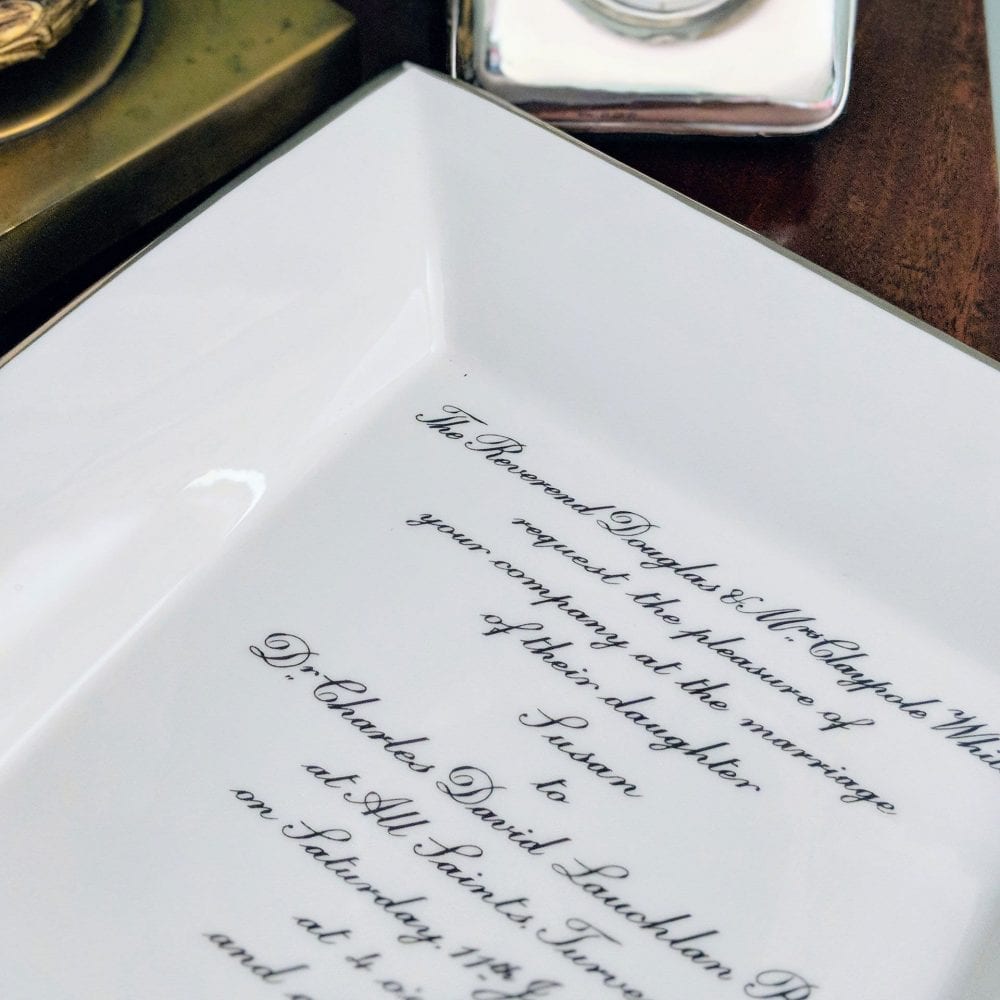 The Reverend Douglas & Mrs. Claypole
request the pleasure of
your company at the marriage
of their daughter
Susan
to
Dr. Charles David Lauchlan
at All Saints,
on Saturday, 11th
at 4
and